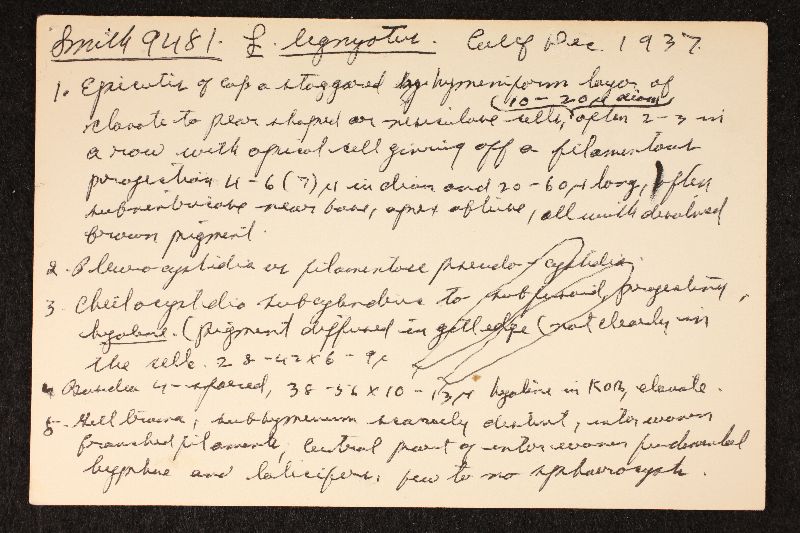 Smith 9481. L. lignyotus. Calif Dec. 1937
1. Epicutis of cap a staggered hymeniform layer of
(10-20 µ diam)
clavate to pear shaped or vesiculose cells, often 2-3 in
a row with apical cell giving off a filamentous
projection 4-6(7) µ in diam and 20-60 µ long, often
subventricose near base, apex obtuse, all with dissolved
brown pigment
2. Pleurocystidia as filamentose pseudo-cystidia.
3. Cheilocystidia subcylindric to subfusoid, projecting,
hyaline. (pigment diffused in gill edge (not clearly in
the cells. 28-42 x 6-9 µ
4. Basidia 4-spored, 38-56 x 10-13 µ hyaline in KOH, clavate.
5. Gill trama, subhymenium scarcely distinct, interwoven
branched filaments, central part of interwoven
hyphae and lactifers; few to no sphaerocysts.